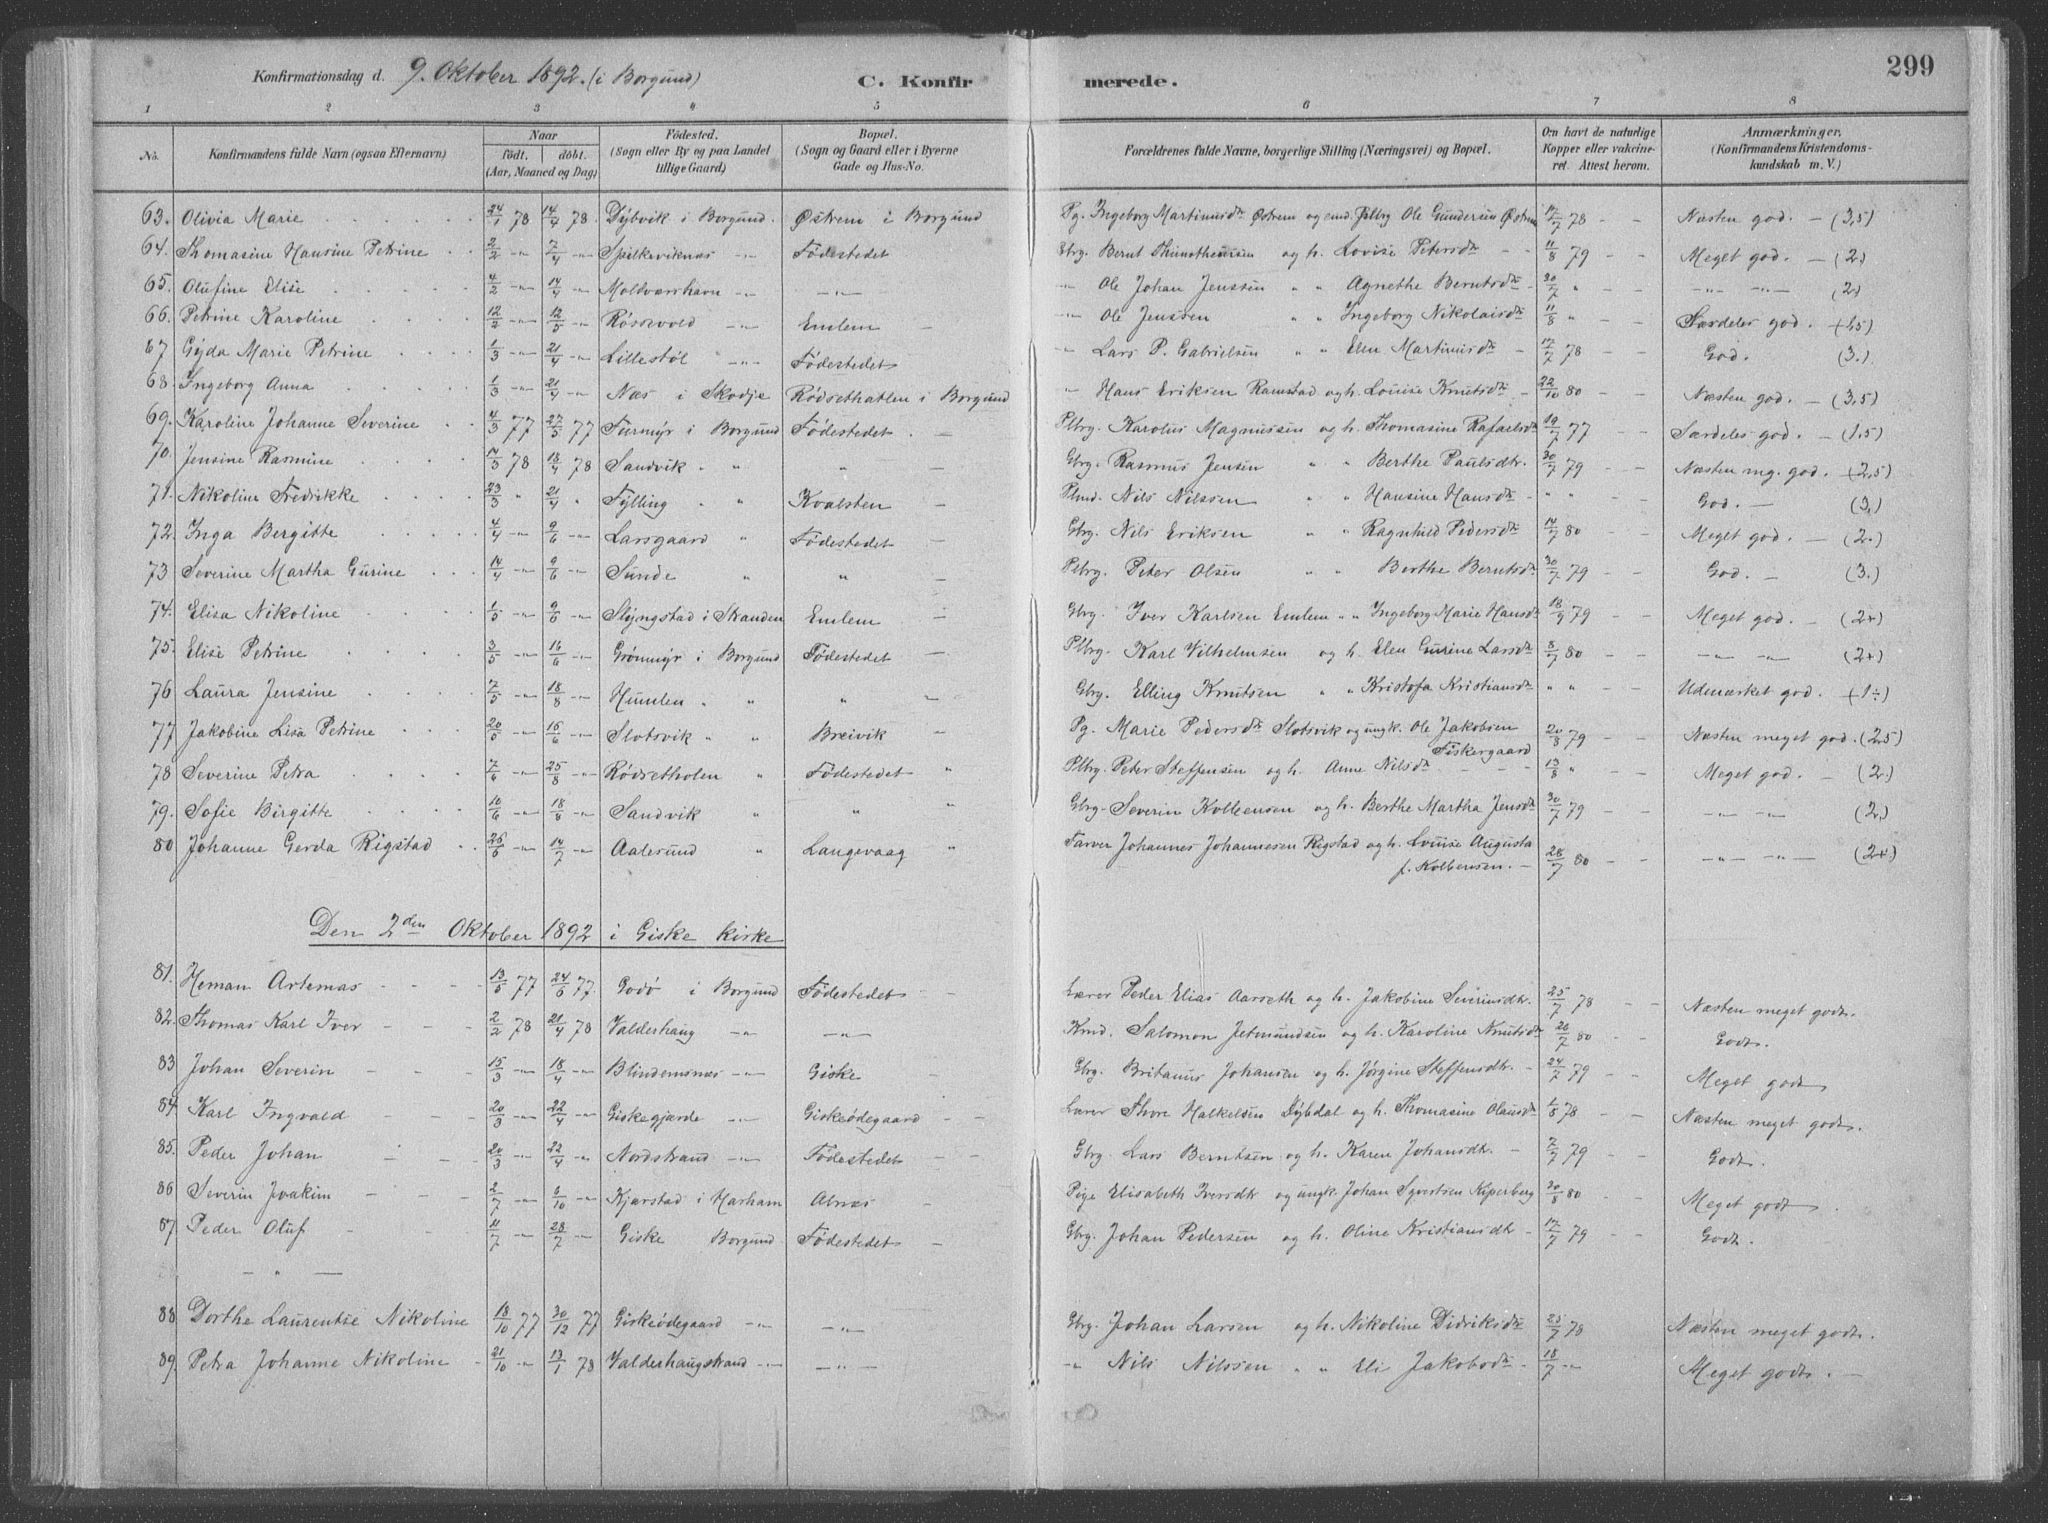 299
Konfirmationsdag d. 9. Oktober 1892. (i Borgund) C. Konfirmerede.
1 2 3 4 5 6 7 8
No. Konfirmandens fulde Navn (ogsaa Efternavn) Naar født. døbt. (Aar, Maaned og Dag) Fødested. (Sogn eller By og paa Landet tillige Gaard) Bopæl. (Sogn og Gaard eller i Byerne Gade og Hus-No. Forældrenes fulde Navne, borgerlige Stilling (Næringsvei) og Bopæl. Om havt de naturlige Kopper eller vakcineret. Attest herom. Anmærkninger. (Konfirmandens Kristendomskundskab m. V.)
63. Olivia Marie 24/1 78 14/4 78. Dybvik i Borgund. Østrem i Borgund Pg. Ingeborg Martinusdtr Østrem og Ole Gundersen 17/7 78 Næsten god. - (3,5)
64. Thomasine Hansine Petrine 2/2 -"- 7/4 -"- Spilkeviknæs -"- Fødestedet Gbrg. Bernt og h. Lovise Petersdtr 11/8 79 Meget god. - (2.)
65. Olufine Elise 4/2 -"- 14/4 -"- Moldværshavn -"- -"- -"- Ole Johan Jenssen " " Agnethe Berntsdtr 30/7 " -"- -"- (2.)
66. Petrine Karoline 12/2 -"- 12/5 -"- Røssevold -"- Emlem -"- Ole Jenssen " " Ingeborg Nikolaisdtr 11/8 " Særdeles god. - (1,5)
67 Gyda Marie Petrine 1/3 -"- 21/4 -"- Lillestøl -"- Fødestedet " Lars P. Gabrielsen " " Elen Martinusdtr 17/7 78 God. (3.)
68. Ingeborg Anna 1/3 -"- 21/4 -"- Næs i Skodje Rødsethatlen i Borgund " Hans Eriksen Ramstad og h. Louise Knutsdtr 22/10 80 Næsten god. - (3,5)
69. Karoline Johanne Severine 4/3 77 27/5 77 Furmyr i Borgund Fødestedet Plbrg. Karolus Magnussen og h. Thomasine Rafaelsdtr 19/7 77 Særdeles god. - (1,5)
70. Jensine Rasmine 14/3 78 18/4 78 Sandvik " " " Gbrg. Rasmus Jensen " " Berthe Paulsdtr. 30/7 79 Næsten mg. god. - (2,5)
71. Nikoline Fredrikke 23/3 " 21/4 " Fylling " Kvalsten Nils Nilssen " " Hansine Hansdtr " " God. - (3.)
72. Inga Bergitte 4/4 -"- 9/6 -"- Larsgaard " Fødestedet Gbrg. Nils Eriksen " " Ragnhild Pedersdtr 14/7 80 Meget god. - (2.)
73 Severine Martha Gurine 14/4 -"- 9/6 -"- Sunde " " Plbrg. Peter Olsen " " Berthe Berntsdtr 30/7 79 God. - (3.)
74. Elisa Nikoline 1/5 -"- 9/6 -"- Slyngstad i Stranden Emlem Gbrg. Iver Karlsen Emlem " " Ingeborg Marie Hansdtr 18/9 79 Meget god. (2+)
75. Elise Petrine 3/5 -"- 16/6 -"- Grønmyr i Borgund Fødestedet Plbrg. Karl Vilhelmsen og h. Elen Gurine Larsdtr 8/7 80 -"- -"- (2+)
76 Laura Jensine 7/5 -"- 18/8 -"- Humlen " " " Gbrg. Elling Knutsen " " Kristofa Kristiansdtr " " Udmærket god. (1÷)
77 Jakobine Lisa Petrine 20/5 -"- 16/6 -"- Slotsvik " " Breivik Pg. Marie Pedersdtr Slotsvik og ungk. Ole Jakobsen Fiskergaard 20/8 79 Næsten meget god. (2,5)
78 Severine Petra 7/6 -"- 25/8 -"- Rødsetholen " Fødestedet " Plbrg. Peter Steffensen og h. Anne Nilsdtr 13/8 " Meget god. - (2.)
79. Sofie Birgitte 10/6 -"- 18/8 -"- Sandvik " " " Gbrg. Severin Kolbensen og h. Berthe Martha Jensdtr 30/7 79 -"- -"- (2.)
80 Johanne Gerda Rigstad 26/6 -"- 14/7 -"- Aalesund " Langevaag " Farver Johannes Johannesen Rigstad og h. Louise Augusta f. Kolbensen. 28/7 80 -"- -"- (2+)
Den 2den Oktober 1892 i Giske kirke
81. Heman Artemas 13/5 77 24/6 77. Godø i Borgund Fødestedet Lærer Peder Elias Aarseth og h. Jakobine Severinsdtr. 25/7 78 Næsten meget godt.
82. Thomas Karl Iver 2/2 78 21/4 78 Valderhaug -"- -"- Salomon Jetmundsen og h. Karoline Knutsdtr 26/7 80 Godt.
83 Johan Severin 15/3 -"- 18/4 -"- Blindemsnæs -"- Giske Gbrg. Britanus Johansen og h. Jørgine Steffensdtr. 24/7 79 Meget godt
84. Karl Ingvald 20/3 -"- 22/4 -"- Giskegjærde -"- Giskeødegaard Lærer Thore Halkelsen Dybdal og h. Thomasine Olausdtr 1/8 78 Næsten meget godt.
85. Peder Johan 20/3 -"- 22/4 -"- Nordstrand -"- Fødestedet Gbrg. Lars Berntsen og h. Karen Johansdtr. 7/7 79 Godt.
86 Severin Joakim 2/7 -"- 6/10 -"- Kjærstad i Harham Alnæs Pige Elisabeth Iversdtr og ungk. Johan Syvertsen Kiperberg 30/8 80 Meget godt.
87. Peder Oluf 11/7 -"- 28/7 -"- Giske Borgund Fødestedet Gbrg. Johan Pedersen og h. Oline Kristiansdtr 17/7 79 Godt.
- " -
88 Dorthe Laurentse Nikoline 18/10 77 30/12 77 Giskeødegaard -"- -"- Gbrg. Johan Larsen og h. Nikoline Didriksdtr 25/7 78 Næsten meget godt.
89. Petra Johanne Nikoline 21/10 -"- 13/1 78 Valderhaugstrand -"- -"- -"- Nils Nilssen " " Eli Jakobsdtr 18/7 -"- Meget godt.